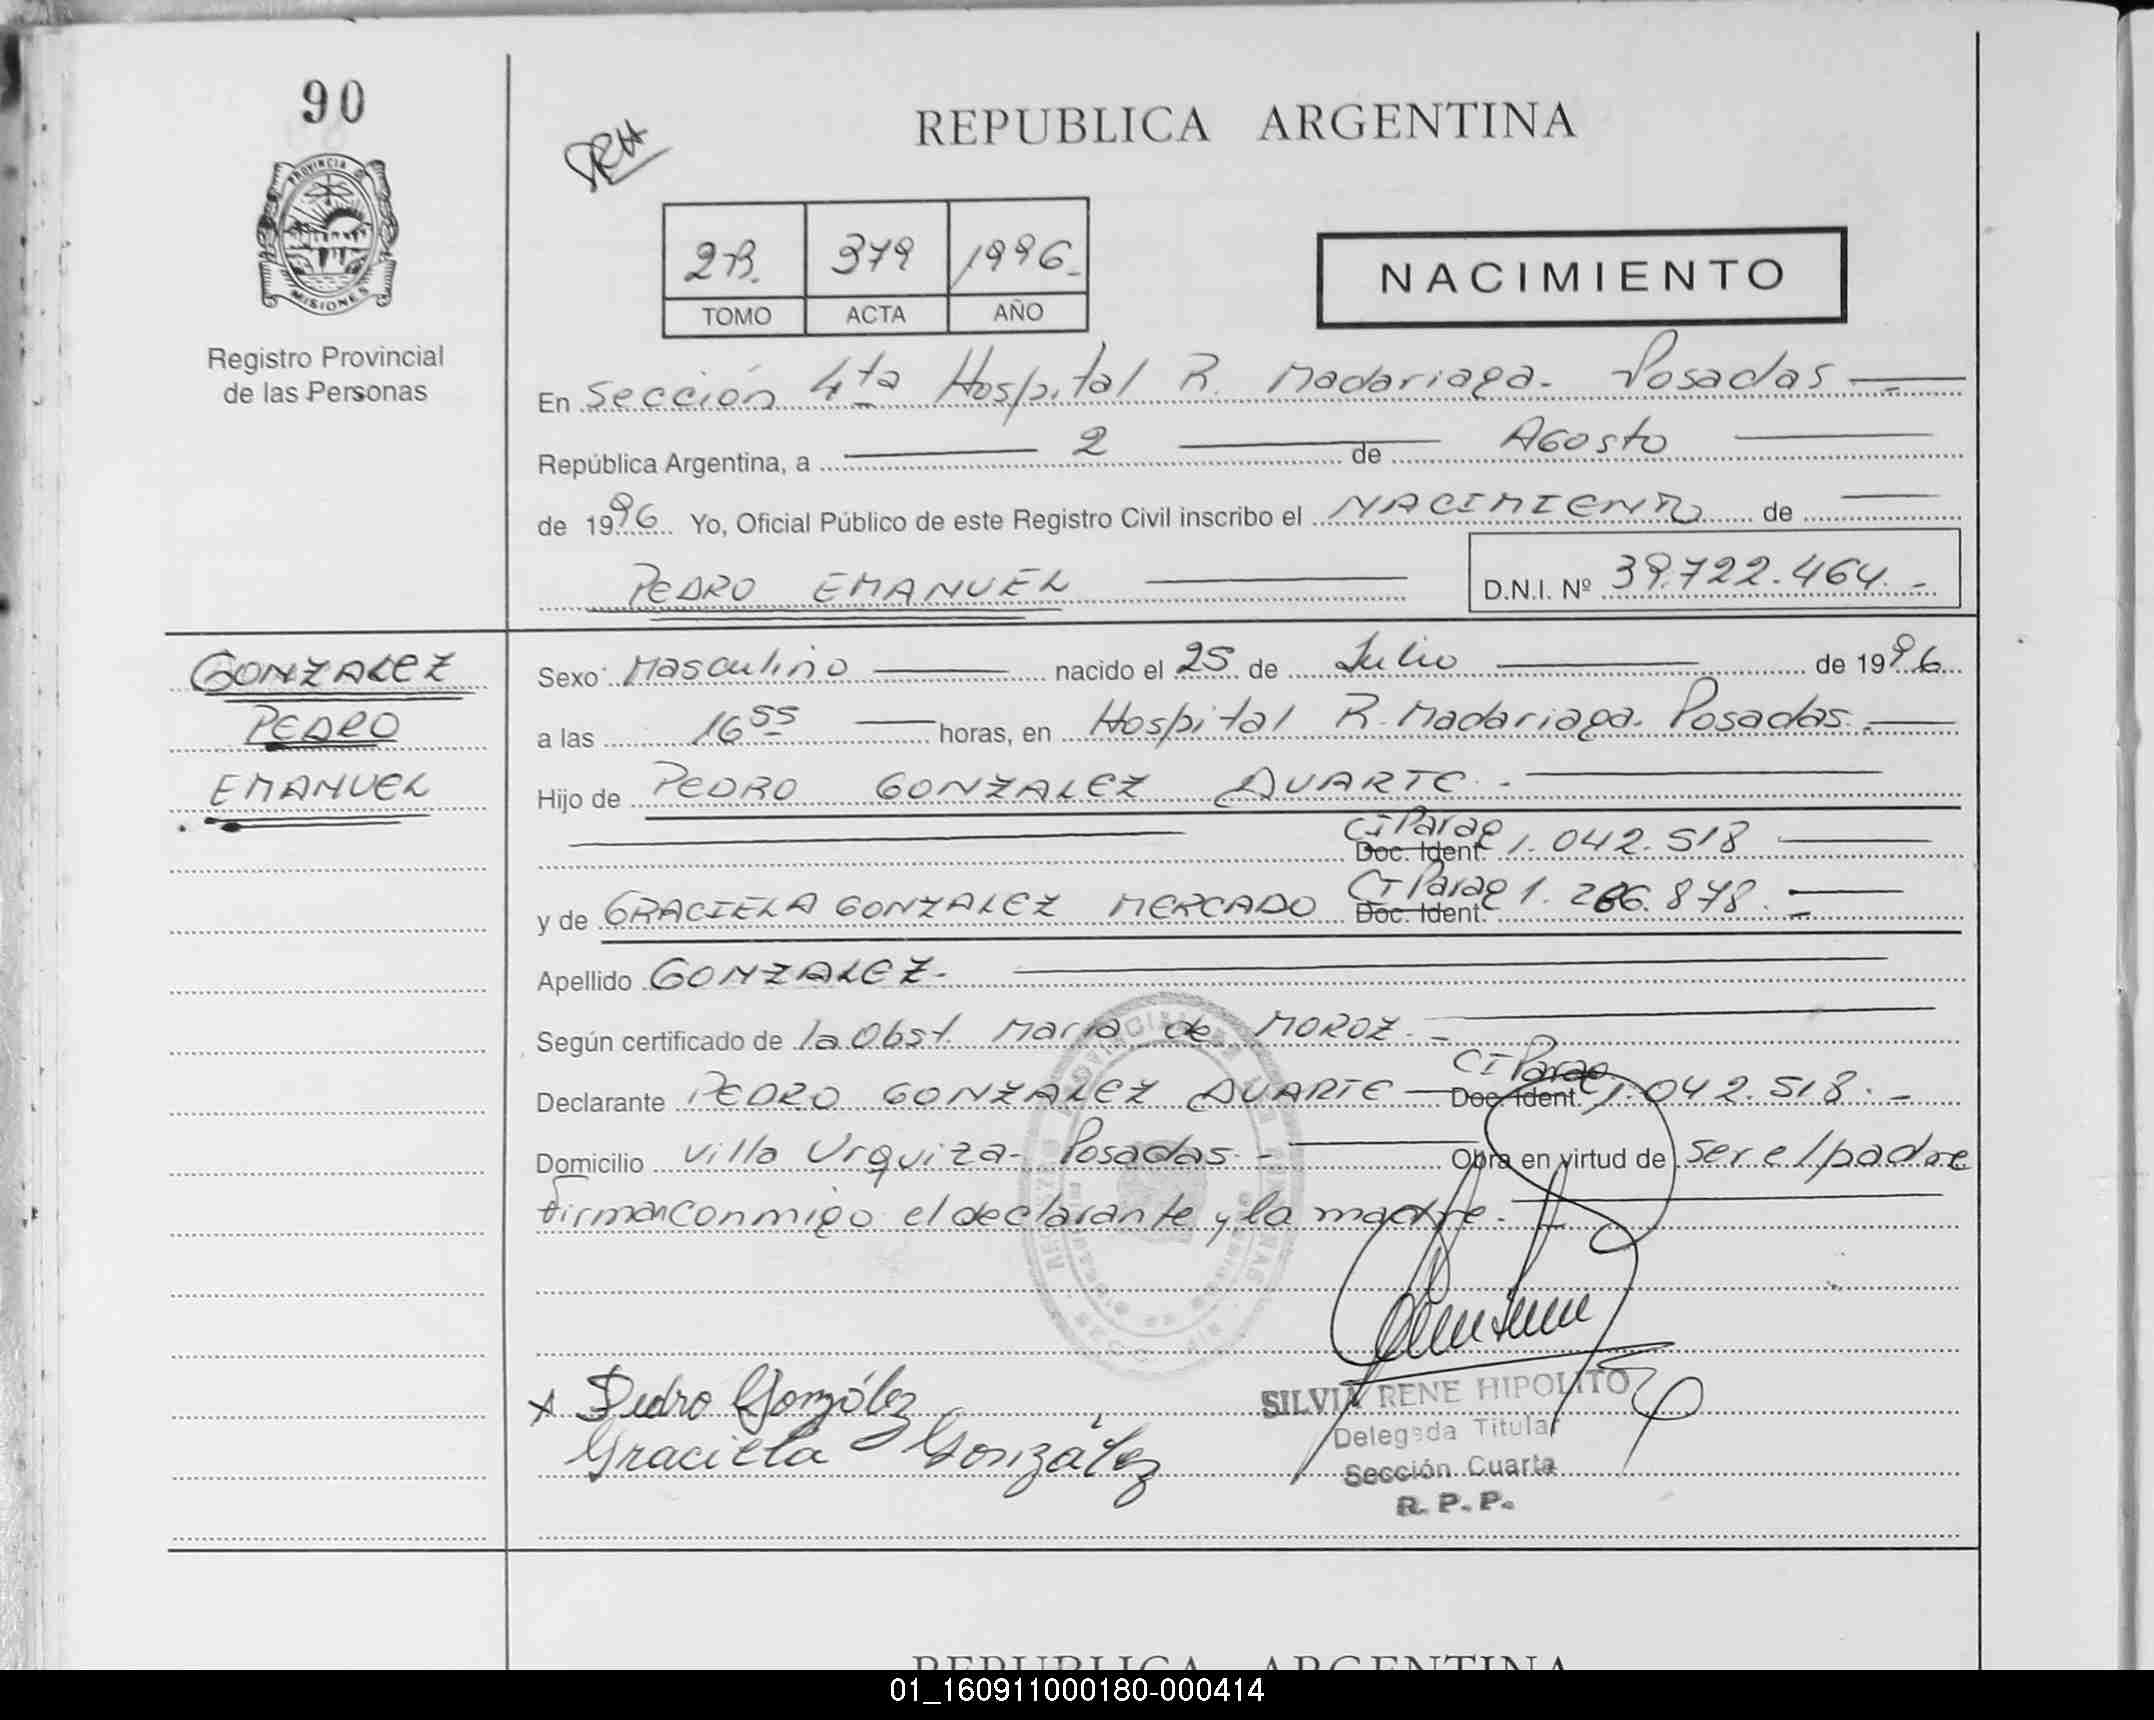 90
PROVINCIA DE
MISIONES
Registro Provincial
de las Personas
REPUBLICA ARGENTINA
2B. 379 1996.
TOMO ACTA AÑO
NACIMIENTO
En Sección 4ta Hospital R. Madariaga. Posadas
República Argentina, a 2 de Agosto
de 1996 Yo, Oficial Público de este Registro Civil inscribo el NACIMIENTO de
PEDRO EMANUEL D.N.I. Nº 39.722.464.-
GONZALEZ
PEDRO
EMANUEL
Sexo: Masculino nacido el 25 de Julio de 1996
a las 16 55 horas, en Hospital R. Madariaga. Posadas.
Hijo de PEDRO GONZALEZ DUARTE.-
CI Parag Doc. Ident. 1.042.518
y de GRACIELA GONZALEZ MERCADO CI Parag Doc. Ident. 1.266.878.-
Apellido GONZALEZ.-
Según certificado de la Obst. Maria de MOROZ.-
Declarante PEDRO GONZALEZ DUARTE CI Parag Doc. Ident. 1.042.518.-
Domicilio Villa Urquiza- Posadas.- Obra en virtud de ser el padre
firman conmigo el declarante y la madre.-
x Pedro González
Graciela González
SILVIA RENE HIPOLITO
Delegada Titular
Sección Cuarta
R. P. P.
REPUBLICA ARGENTINA
01_160911000180-000414